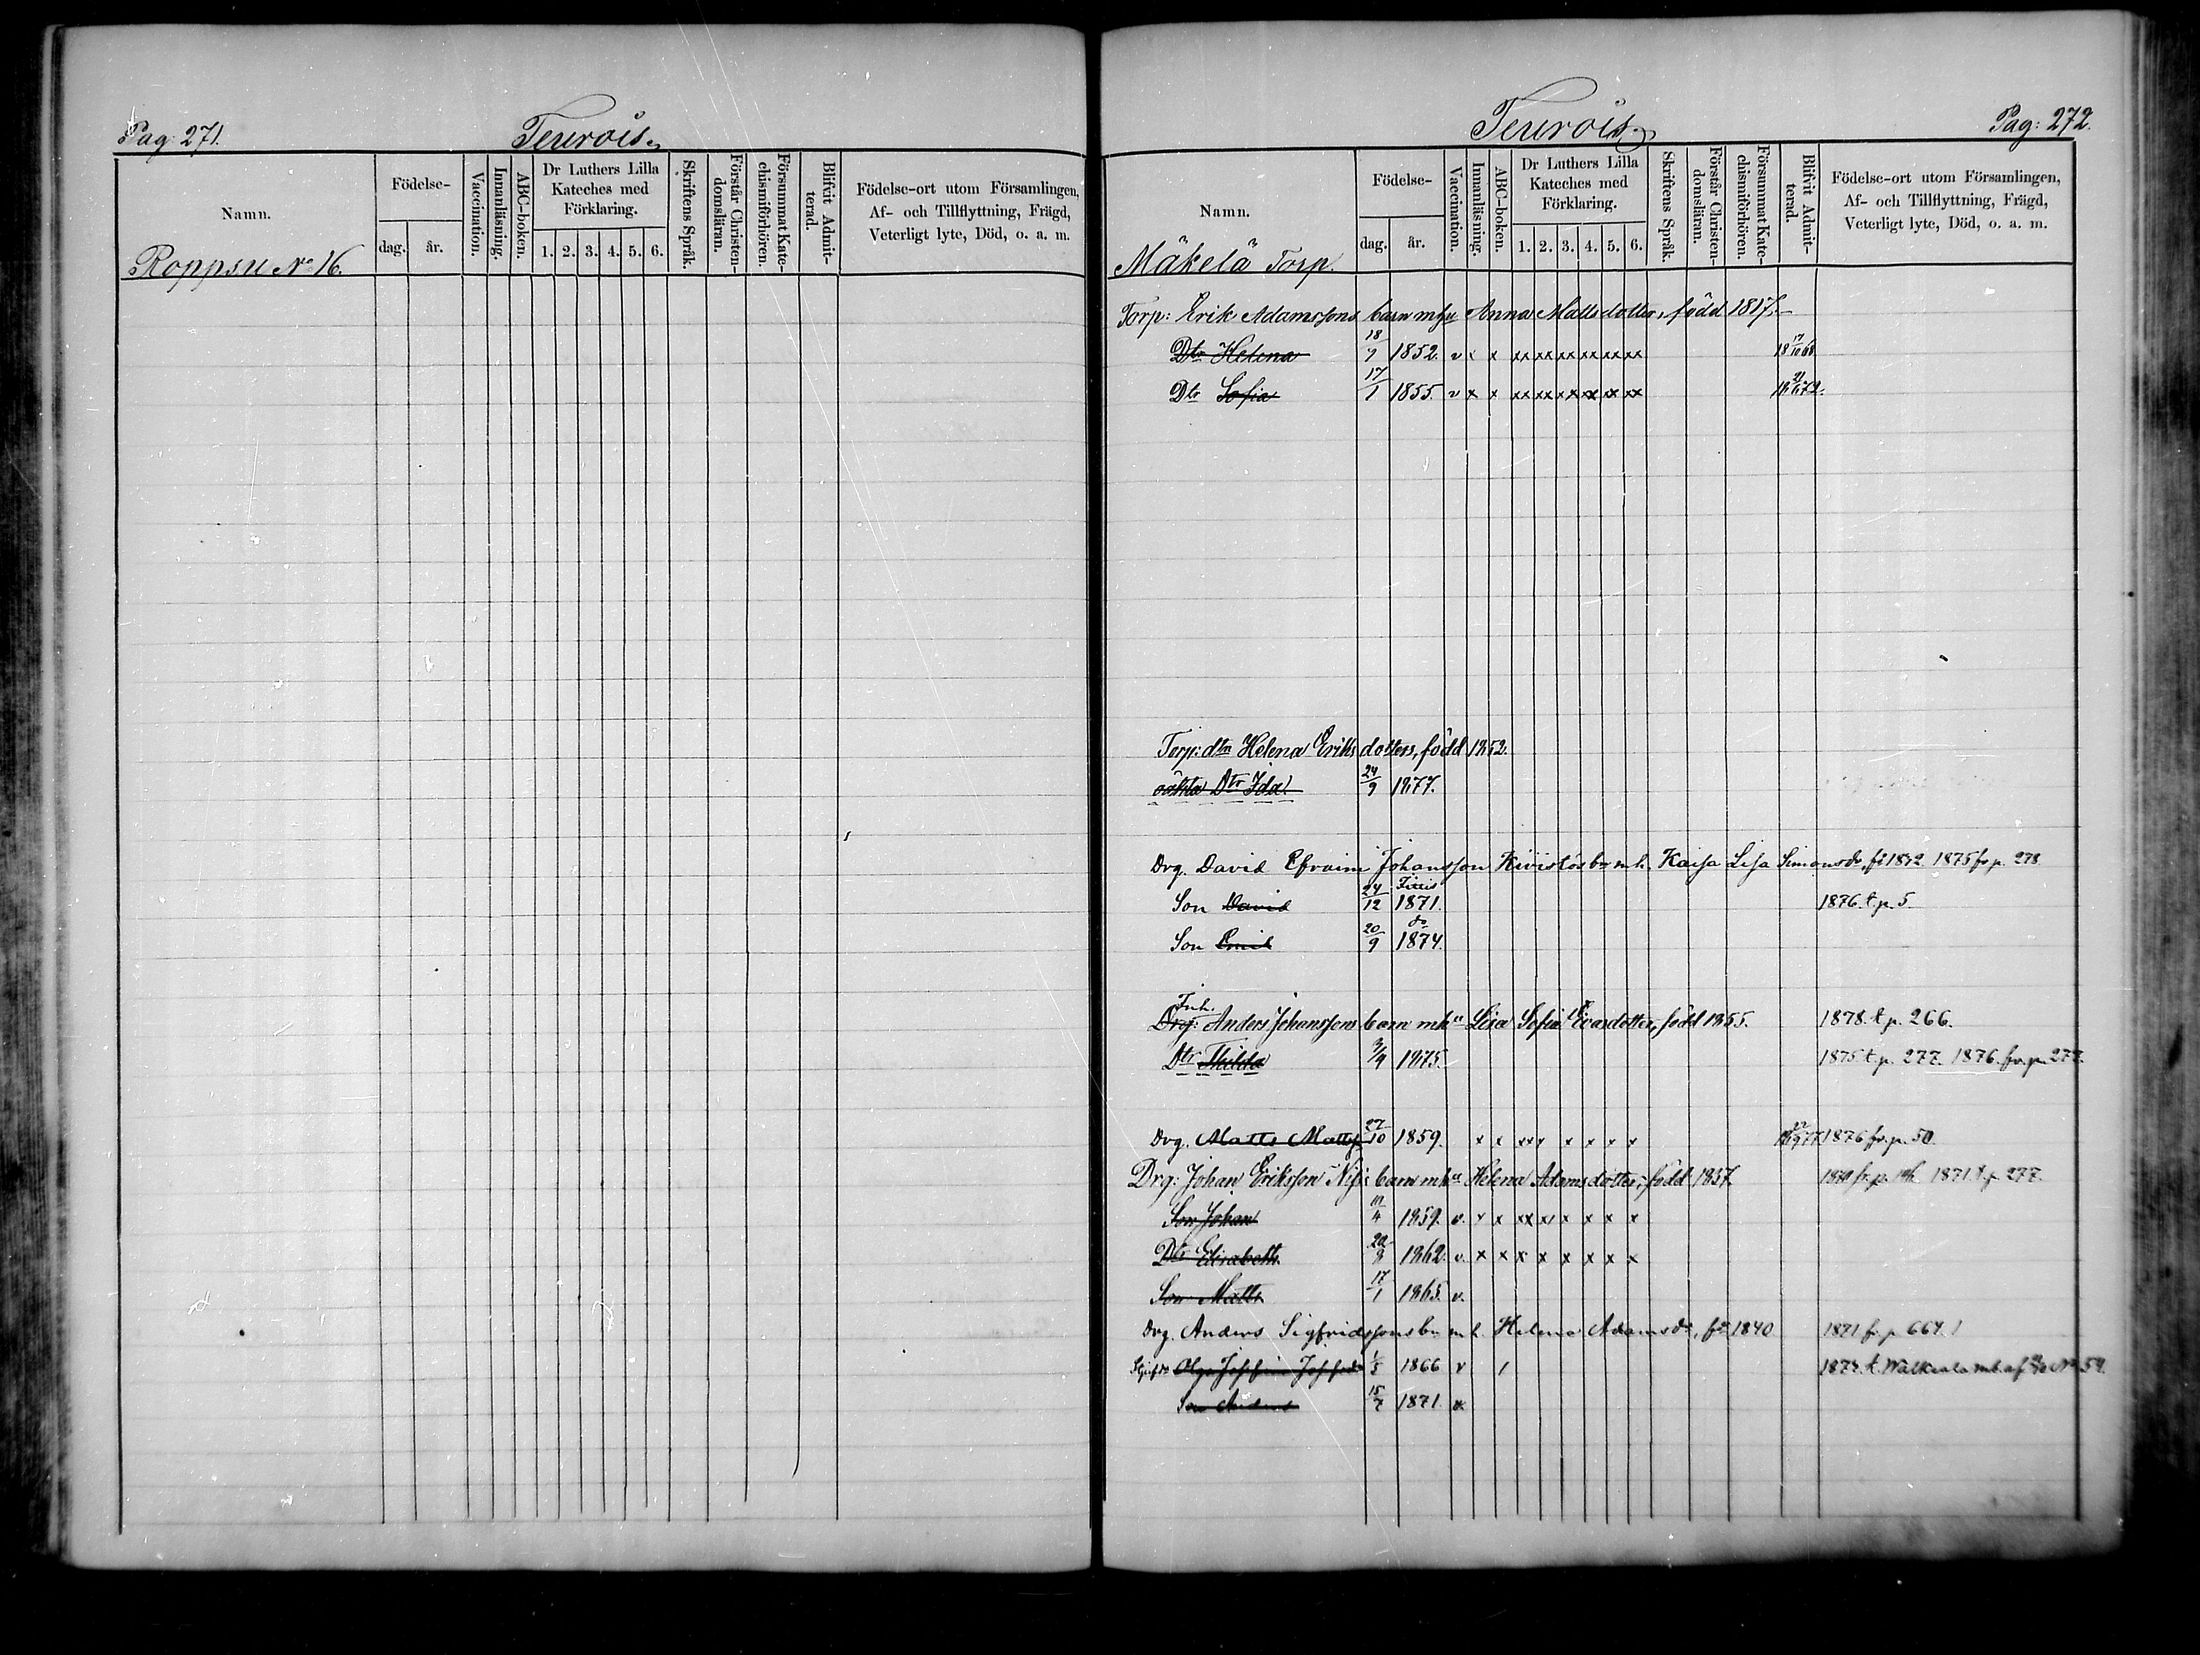 Pag: 271.
Teurois
Namn.
Födelse-
dag.
år.
Vaccination.
Innanläsning.
ABC-boken.
Dr Luthers Lilla Kateches med Förklaring.
1. 2. 3. 4. 5. 6.
Skriftens Språk.
Förstår Christendomsläran.
Försummat Katechismiförhören.
Blifvit Admitterad.
Födelse-ort utom Församlingen, Af- och Tillflyttning, Frägd, Veterligt lyte, Död, o. a. m.
Roppsu No 16.
Teurois
Pag: 272.
Namn.
Födelse-
dag.
år.
Vaccination.
Innanläsning.
ABC-boken.
Dr Luthers Lilla Kateches med Förklaring.
1. 2. 3. 4. 5. 6.
Skriftens Språk.
Förstår Christendomsläran.
Försummat Katechismiförhören.
Blifvit Admitterad.
Födelse-ort utom Församlingen, Af- och Tillflyttning, Frägd, Veterligt lyte, Död, o. a. m.
Mäkelä Torp.
Torp: Erik Adamssons barn m hu Anna Mattsdotter, född 1817.
Dtr Helena 18/9 1852. v x x xx xx xx xx xx xx
Dtr Sofia 17/1 1855. v x x xx xx xx xx xx xx
Torp: dtn Helena Eriksdotters, född 1852.
oäkta Dtr Ida 24/9 1877.
Drg. David Efraim Johansson Kivistös bn m h. Kaisa Lisa Simonsdr, f: 1842. 1875 fr p. 278
Son David 24/12 1871. 1876. t. p. 5.
Son Emil 20/9 do 1874.
Inh.
Drg: Anders Johanssons barn m hu Lisa Sofia Evasdotter, född 1855. 1878. t. p. 266.
Dtr Thilda 3/9 1875. 1875 t. p. 277. 1876. fr. p. 277.
Drg. Matts Mattss 27/10 1859. x x xx x x x x x 1876 fr. p. 50.
Drg: Johan Eriksson barn m hu Helena Adamsdotter, född 1837. 1871 t. p. 277.
Son Johan 1859. v. x x xx x x x x x
Dtr Elisabeth 1862. v. x x x x x x x x
Son Matts 17/1 1865. v.
Drg. Anders Sigfridssons bn m h. Helena Adamsdr, f: 1840 1871 fr p 664.
Olga Josefina 1866 v 1874. t. Walkeala
Son Anders 15/7 1871. v.